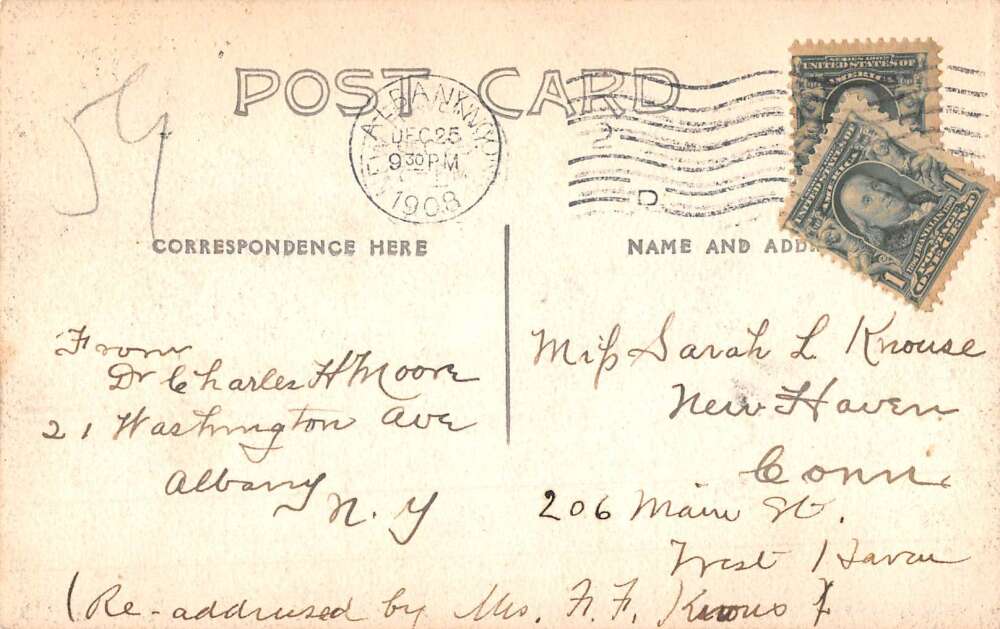 POST CARD
ALBANY, N.Y.
DEC 25
9 30 PM
1908
2
D
SERIES 1902
UNITED STATES OF
AMERICA
UNITED STATES OF
AMERICA
1
FRANKLIN
POSTAGE
ONE CENT
1
CORRESPONDENCE HERE
NAME AND ADD
From
Dr Charles H Moore
21 Washington Ave
Albany
N. Y
Miss Sarah L Knouse
New Haven
Conn.
206 Main St.
West Haven
(Re-addressed by Mrs. F. F.